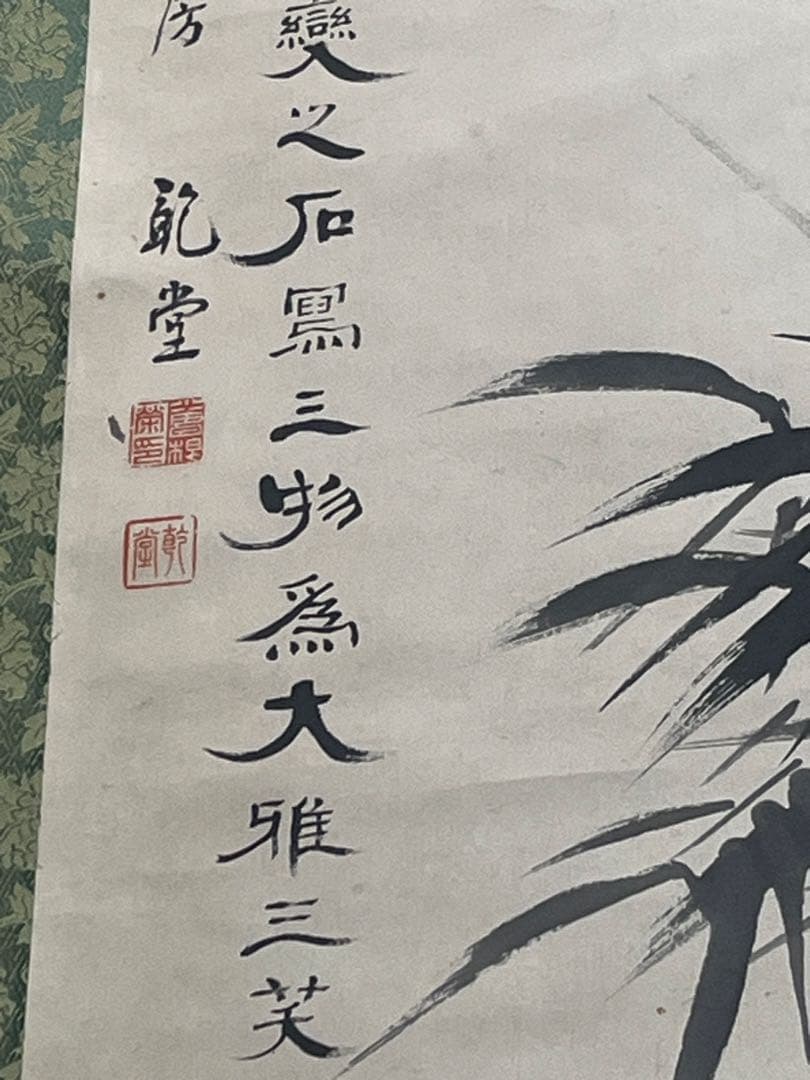 變之石寫三物爲大雅三笑
房 乾堂
乾堂